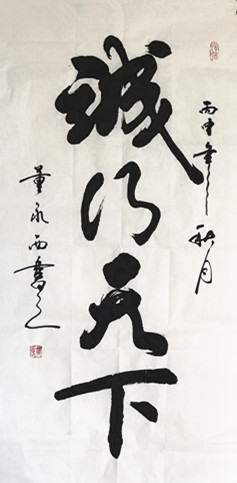 丙申年秋月
誠行天下
董永西書